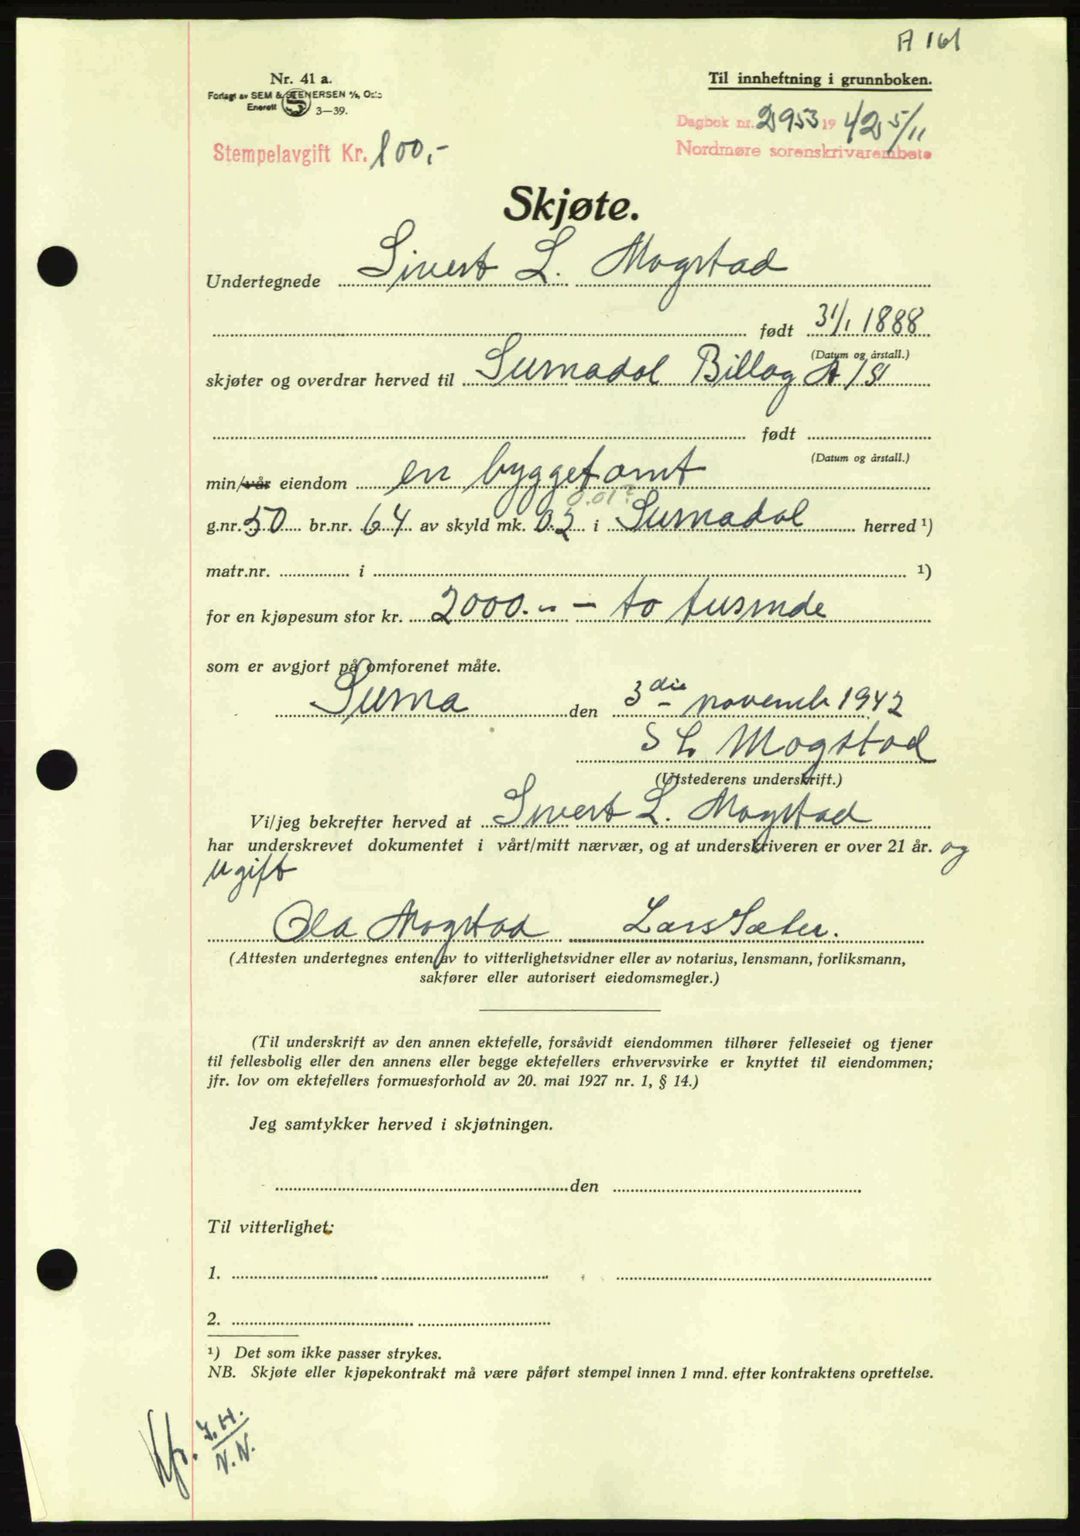 A 161
Nr. 41 a.
Forlagt av SEM & STENERSEN A/S, Oslo
Enerett 3—39.
Til innheftning i grunnboken.
Dagbok nr. 2953 1942 5/11
Nordmøre sorenskrivarembete
Stempelavgift Kr. 100,-
Skjøte.
Undertegnede Sivert L. Mogstad
født 31/1 1888
(Datum og årstall.)
skjøter og overdrar herved til Surnadal Billag A/S
født
(Datum og årstall.)
min/vår eiendom en byggetomt
0.01?
g.nr. 50 br.nr. 64 av skyld mk. 0.2 i Surnadal herred ¹)
matr.nr. i ¹)
for en kjøpesum stor kr. 2000.-- – to tusinde
som er avgjort på omforenet måte.
Surna den 3die novemb 1942
S L Mogstad
(Utstederens underskrift.)
Vi/jeg bekrefter herved at Sivert L. Mogstad
har underskrevet dokumentet i vårt/mitt nærvær, og at underskriveren er over 21 år. og
ugift
Ola Mogstad Lars Sæter.
(Attesten undertegnes enten av to vitterlighetsvidner eller av notarius, lensmann, forliksmann,
sakfører eller autorisert eiedomsmegler.)
(Til underskrift av den annen ektefelle, forsåvidt eiendommen tilhører felleseiet og tjener
til fellesbolig eller den annens eller begge ektefellers erhvervsvirke er knyttet til eiendommen;
jfr. lov om ektefellers formuesforhold av 20. mai 1927 nr. 1, § 14.)
Jeg samtykker herved i skjøtningen.
den
Til vitterlighet:
1.
2.
¹) Det som ikke passer strykes.
NB. Skjøte eller kjøpekontrakt må være påført stempel innen 1 mnd. efter kontraktens oprettelse.
Kfr. J.H.
N.N.